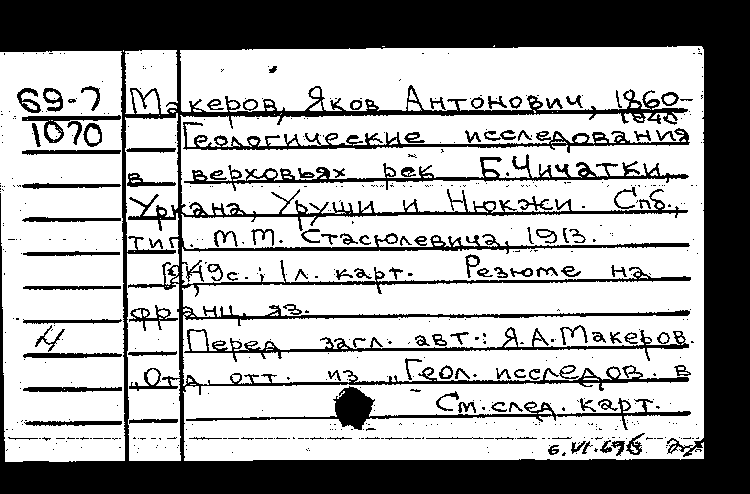 69-7 Макеров, Яков Антонович, 1860-
1940
1070 Геологические исследования
в верховьях рек Б.Чичатки,
Уркана, Уруши и Нюкжи. Спб.,
тип. М.М. Стасюлевича, 1913.
[2], 49с.; 1л. карт. Резюме на
франц. яз.
Перед загл. авт.: Я.А.Макеров.
„Отд. отт. из „Геол. исследов. в
См.след. карт.
6.VI.69